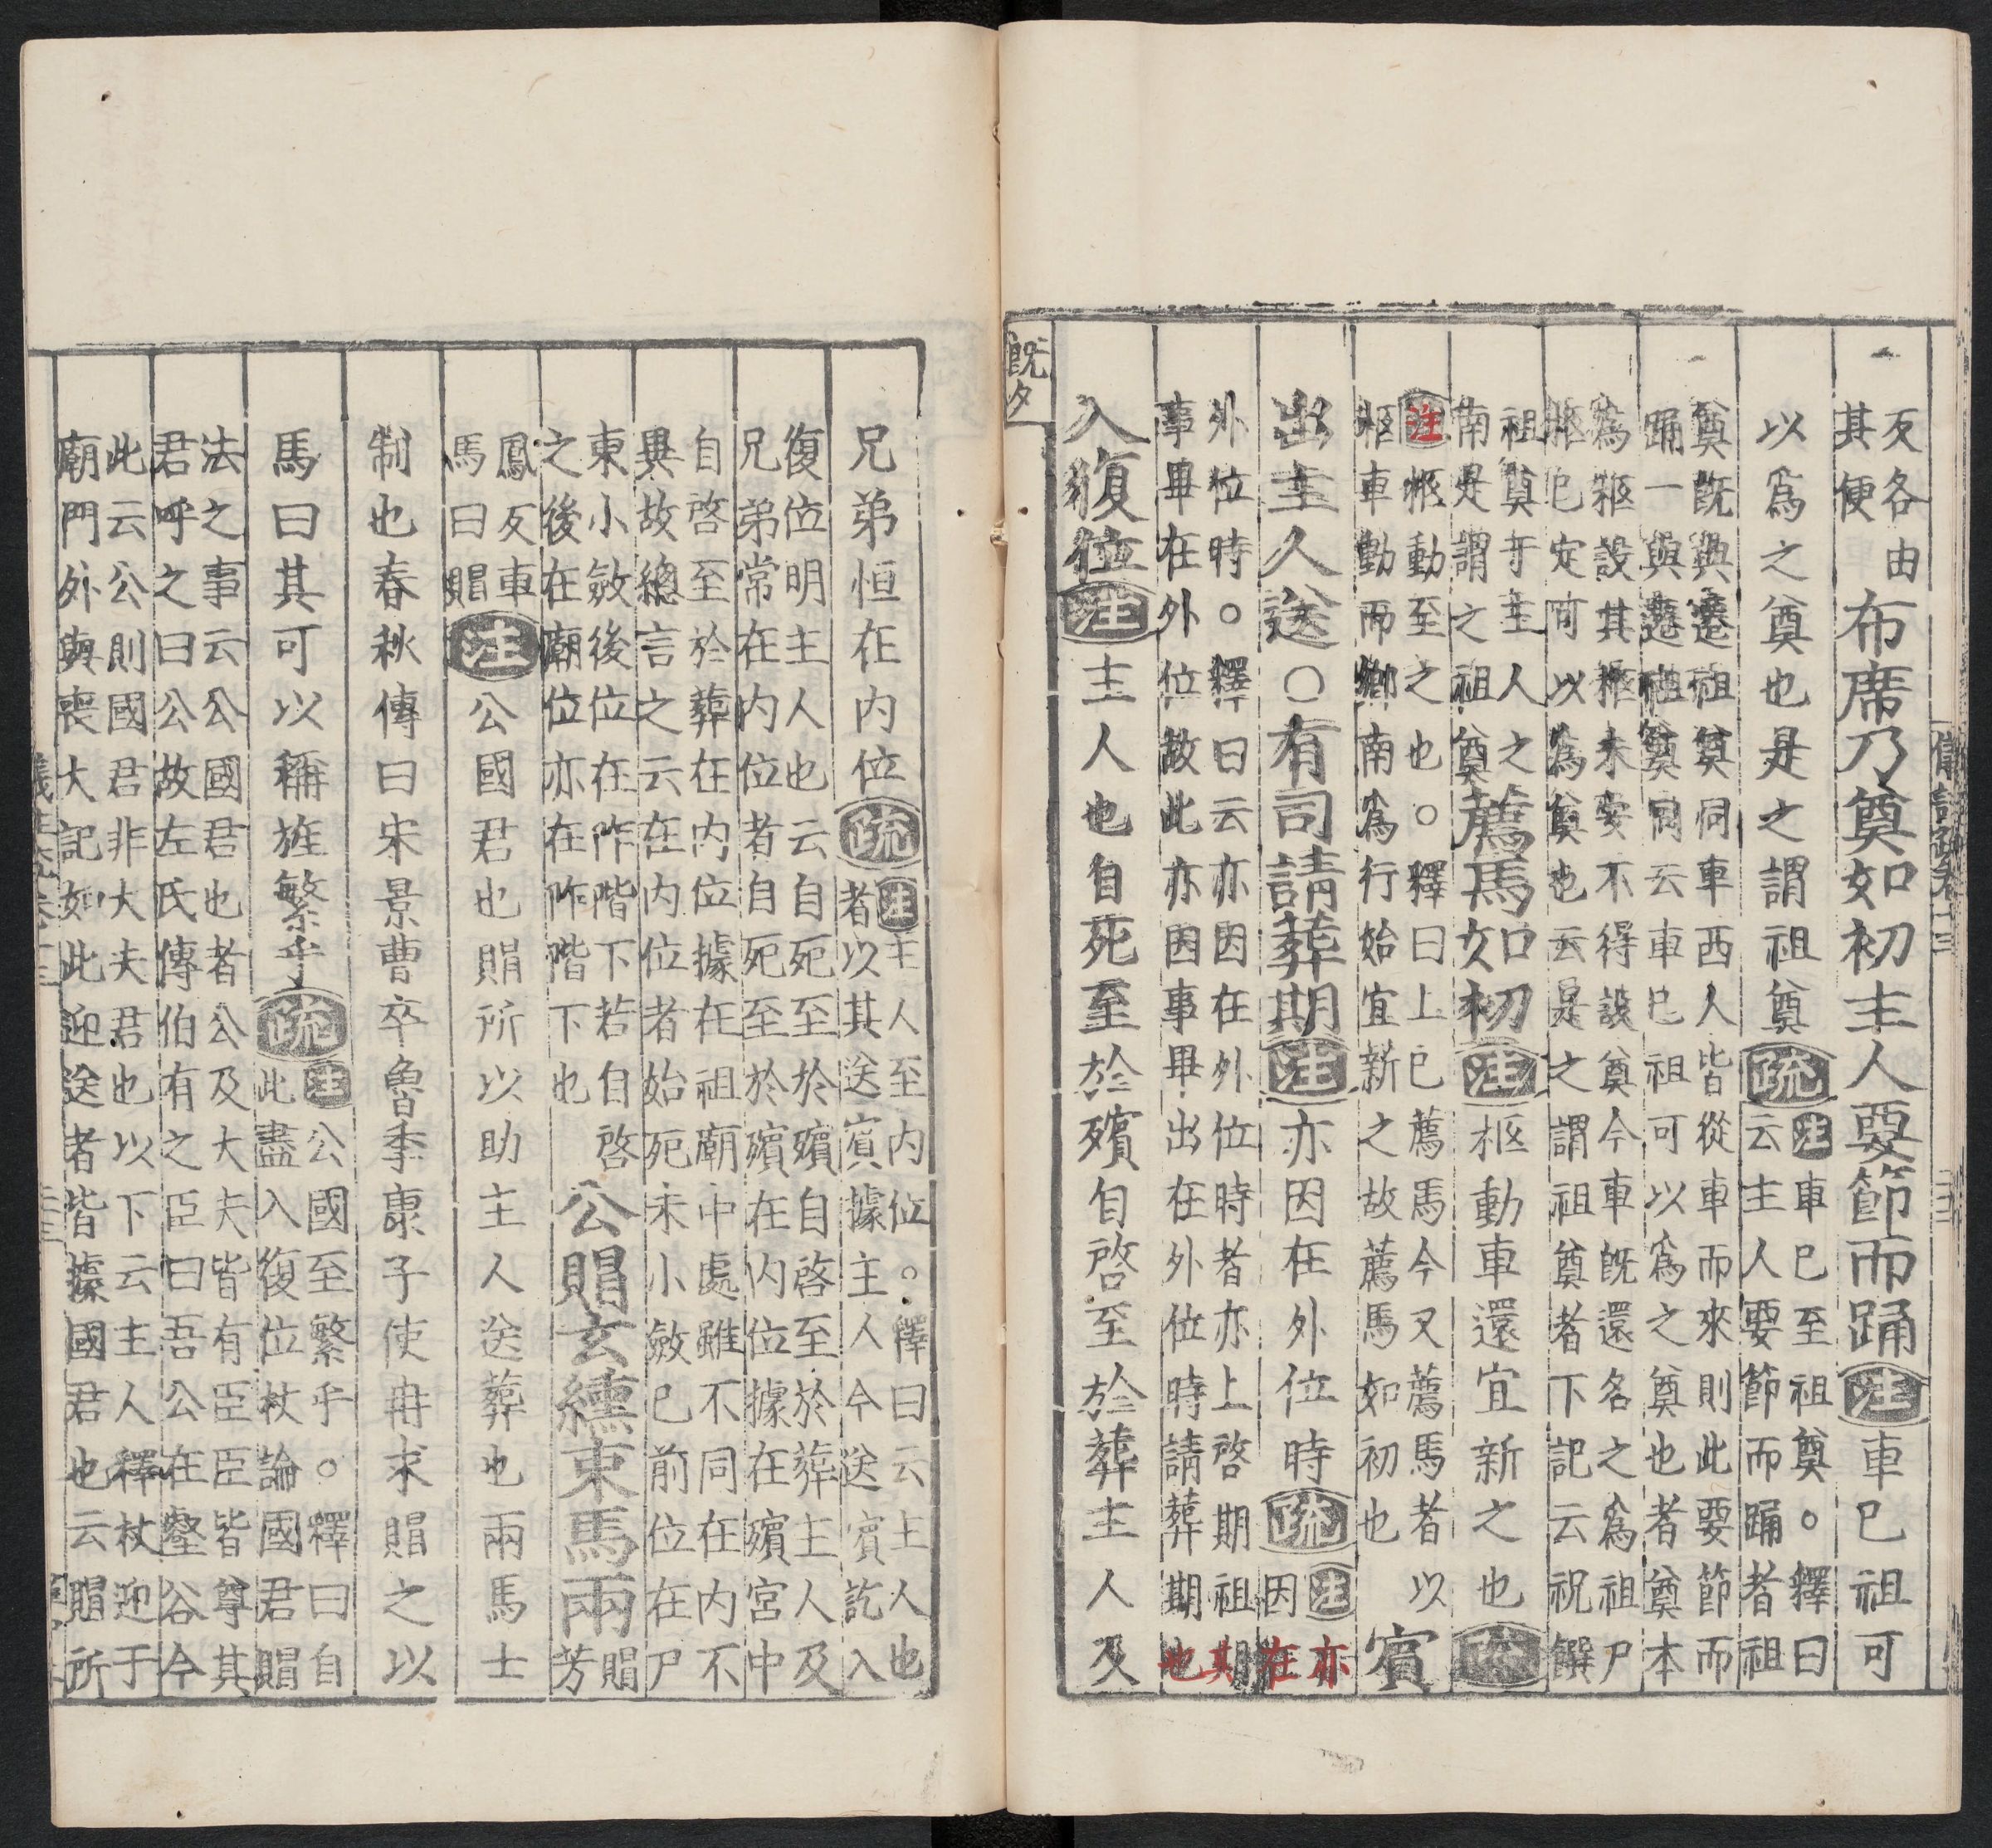 反各由
其便
布席乃奠如初主人要節而踊注車巳祖可
以爲之奠也是之謂祖奠疏
注車巳至祖奠。釋曰
云主人要節而踊者祖
奠既與遷祖奠同車西人皆從車而來則此要節而
踊一與遷祖奠同云車巳祖可以爲之奠也者奠本
爲柩設其柩未安不得設奠今車既還名之爲祖尸
柩巳定可以爲奠也云是之謂祖奠者下記云祝饌
祖奠于主人之
南是謂之祖奠
薦馬如初注柩動車還宜新之也疏
注柩動至之也。釋曰上巳薦馬今又薦馬者以
柩車動而鄉南爲行始宜新之故薦馬如初也
賓
出主人送○有司請葬期注亦因在外位時疏
注亦
因在
外位時。釋曰云亦因在外位時者亦上啓期祖期
事畢在外位故此亦因事畢出在外位時請葬期也
入復位注主人也自死至於殯自啓至於葬主人及
既夕
兄弟恒在内位疏
注主人至内位。釋曰云主人也
者以其送賓據主人今送賓訖入
復位明主人也云自死至於殯自啓至於葬主人及
兄弟常在内位者自死至於殯在内位據在殯宮中
自啓至於葬在内位據在祖廟中處雖不同在内不
異故總言之云在内位者始死未小斂巳前位在尸
東小斂後位在阼階下若自啓
之後在廟位亦在阼階下也
公賵玄纁束馬兩
賵
芳
鳳反車
馬曰賵
注公國君也賵所以助主人送葬也兩馬士
制也春秋傳曰宋景曹卒魯季康子使冉求賵之以
馬曰其可以稱旌繁乎疏
注公國至繁乎。釋曰自
此盡入復位杖論國君賵
法之事云公國君也者公及大夫皆有臣臣皆尊其
君呼之曰公故左氏傳伯有之臣曰吾公在壑谷今
此云公則國君非大夫君也以下云主人釋杖迎于
廟門外與喪大記如此迎送者皆據國君也云賵所